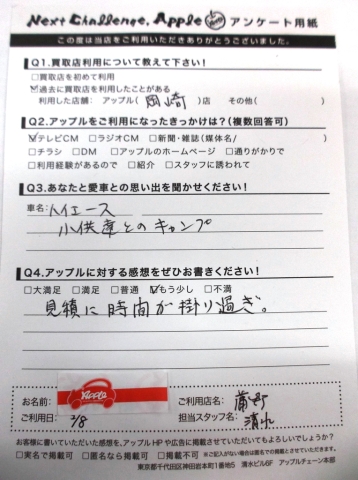 Next Challenge, Apple アンケート用紙
この度は当店をご利用いただきありがとうございました。
Q1.買取店利用について教えて下さい!
□買取店を初めて利用
☑過去に買取店を利用したことがある
利用した店舗: アップル( 岡崎 )店 その他( )
Q2.アップルをご利用になったきっかけは?(複数回答可)
☑テレビCM □ラジオCM □新聞・雑誌(媒体名/ )
□チラシ □DM □アップルのホームページ □通りがかりで
□利用経験があるので □紹介 □スタッフに誘われて
Q3.あなたと愛車との思い出を聞かせください!
車名: ハイエース
小供達とのキャンプ
Q4.アップルに対する感想をぜひお書きください!
□大満足 □満足 □普通 ☑もう少し □不満
見積に時間が掛り過ぎ。
お名前: Apple
ご利用店名: 蒲郡
ご利用日: 3/8
担当スタッフ名: 清水
お客様に書いていただいた感想を、アップルHPや広告に掲載させていただいてもよろしいでしょうか?
□実名で掲載可 □匿名なら掲載可 □掲載不可 ※ご記入がない場合は匿名での掲載とさせていただきます。
東京都千代田区神田岩本町1番地5 清水ビル6F アップルチェーン本部